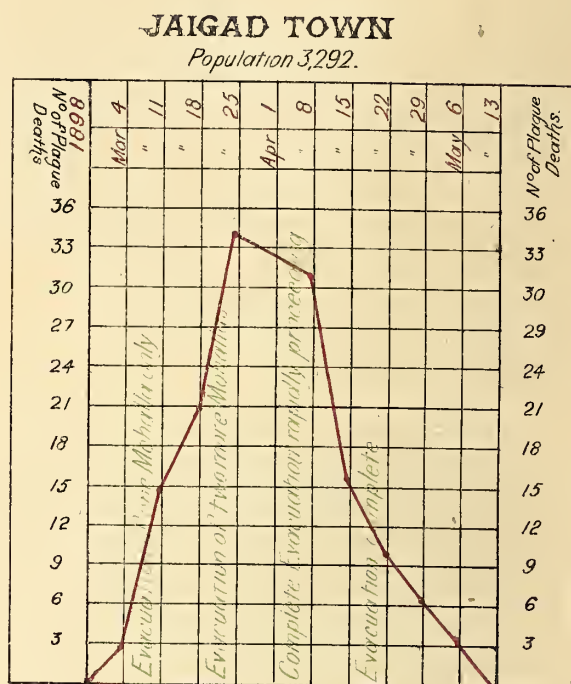 JAIGAD TOWN
Population 3,292.
1898
Nº of Plague
Deaths
Mar 4
" 11
" 18
" 25
Apr 1
" 8
" 15
" 22
" 29
May 6
" 13
Nº of Plague
Deaths.
36
33
30
27
24
21
18
15
12
9
6
3
36
33
30
29
24
21
18
15
12
9
6
3
Evacuation one Mohalla only
Evacuation of two more Mohallas
Complete Evacuation rapidly proceeding
Evacuation complete